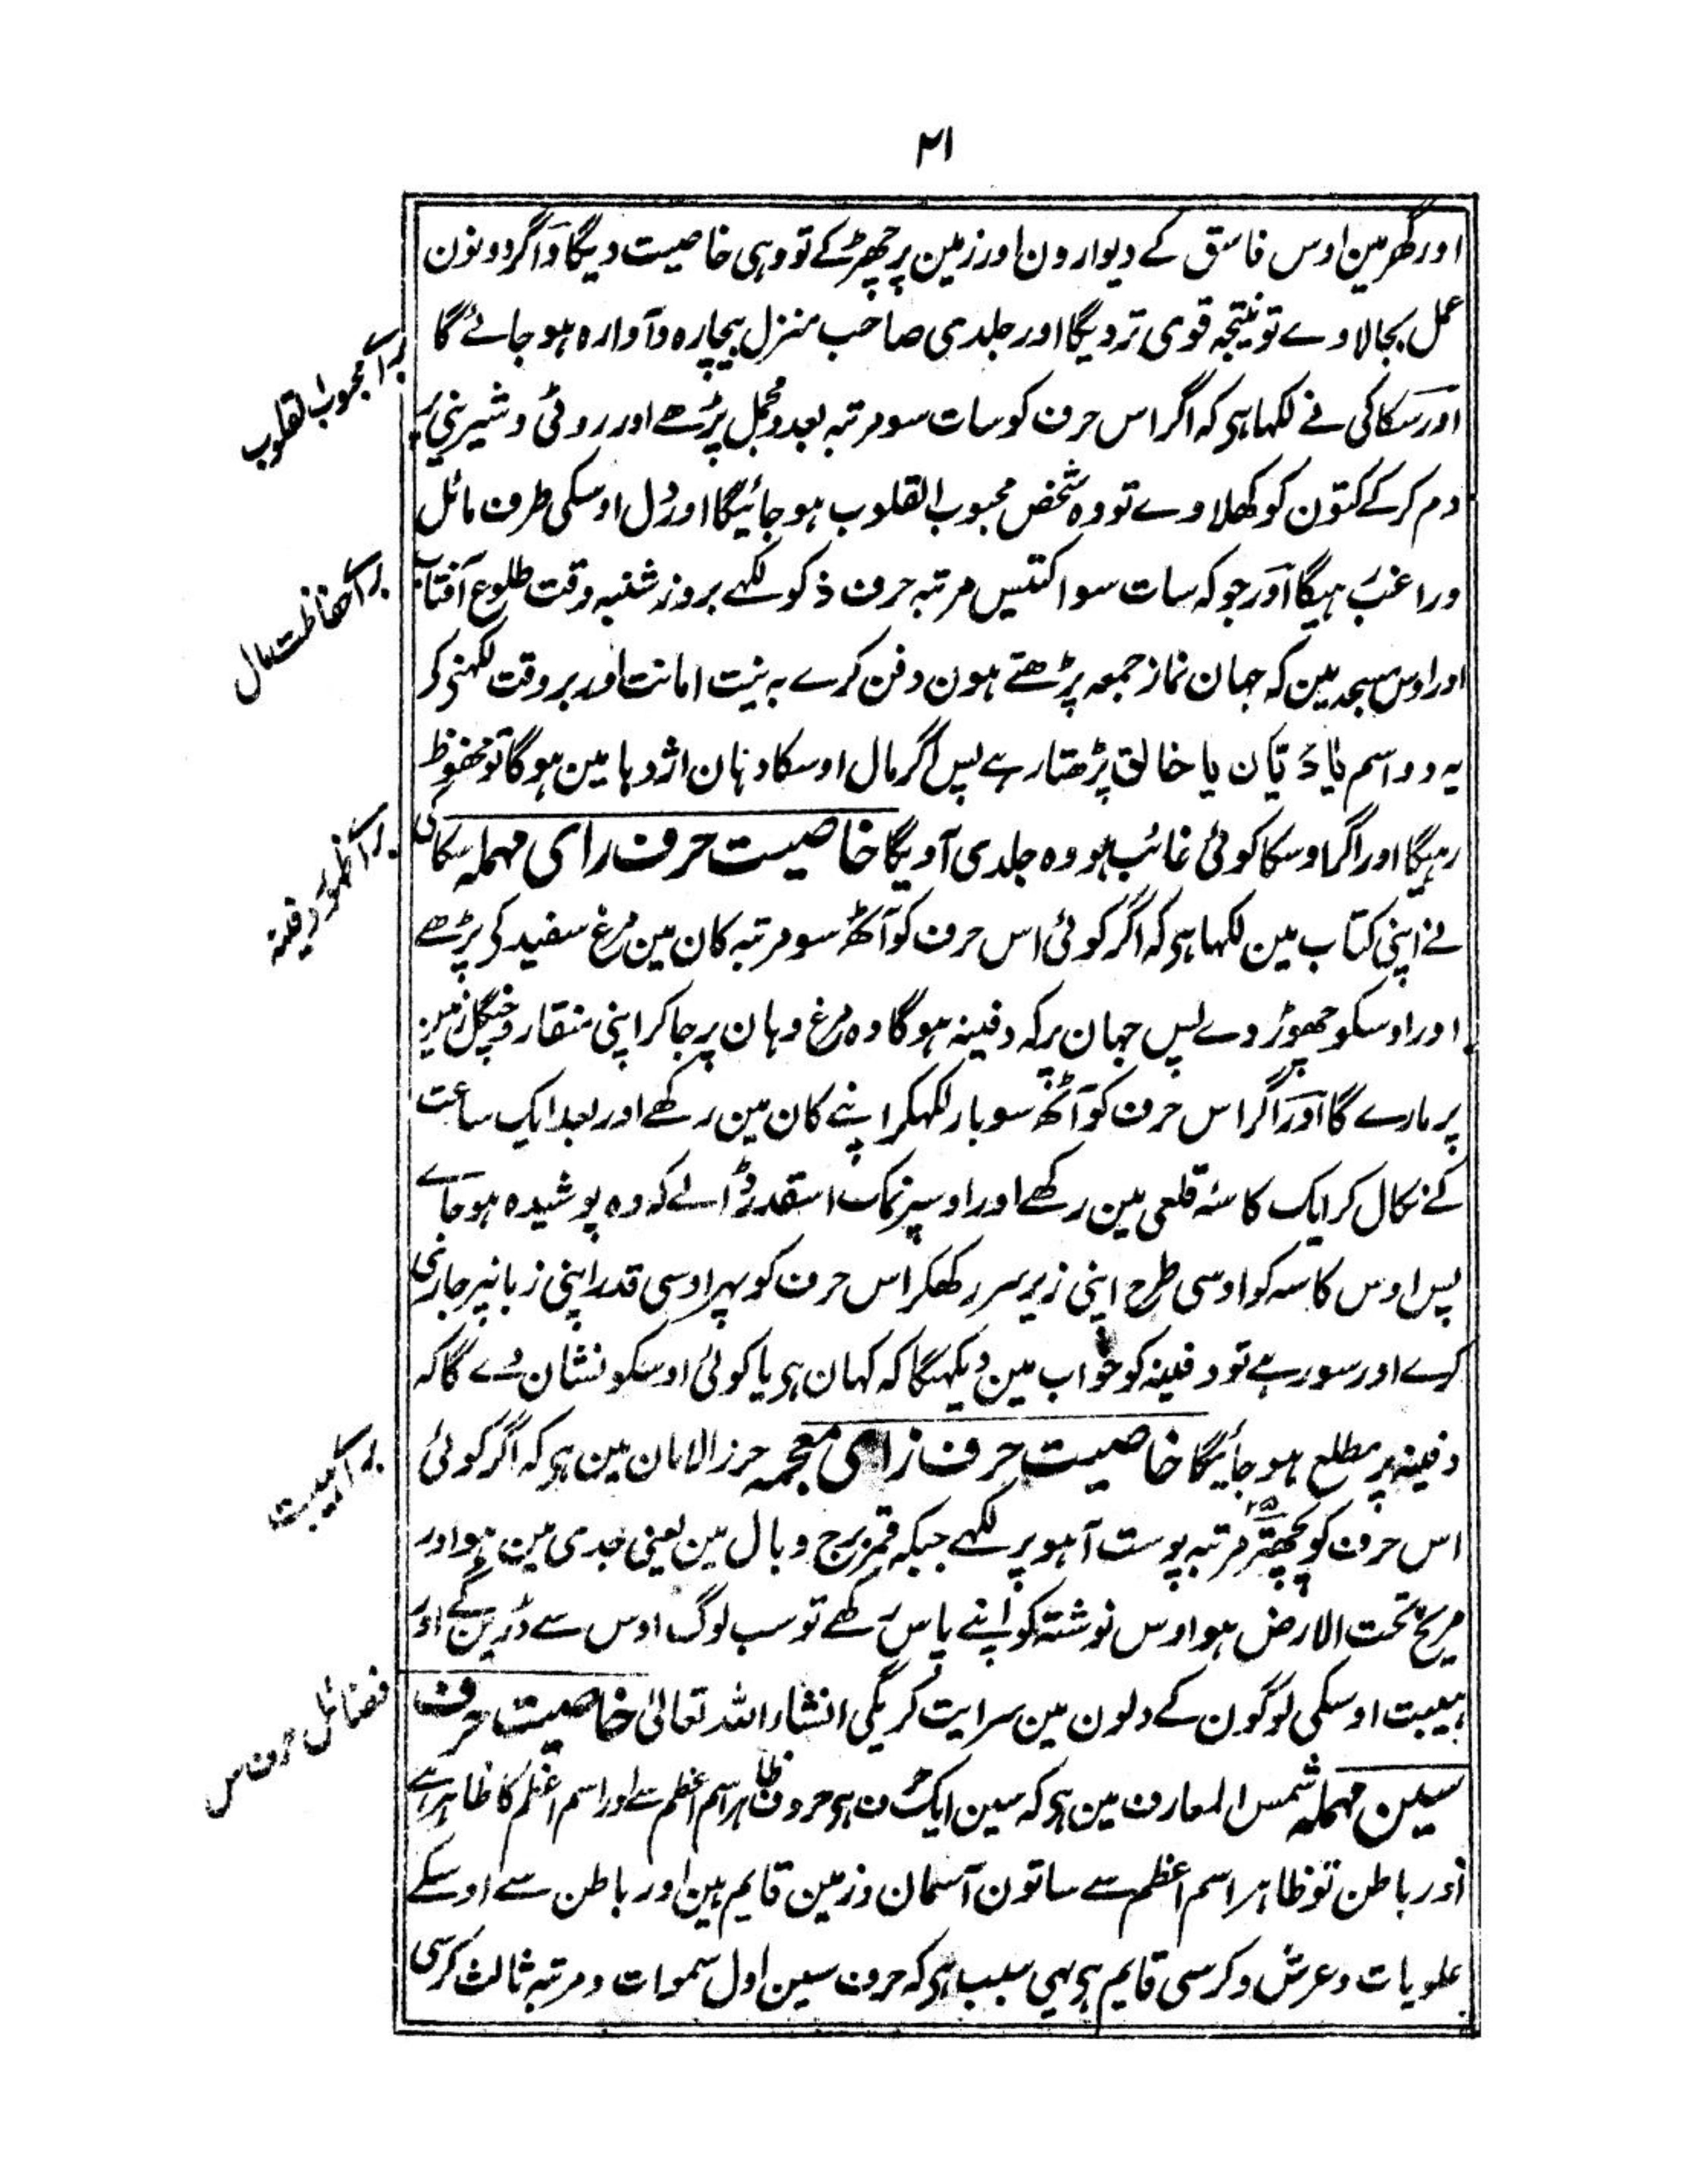 ۲۱
اور گھر مین اوس فاسق کے دیوارون اور زمین پر چھڑکے تو وہی خاصیت دیگا و اگر دونون
عمل بجالاوے تو نتیجہ قوی تر دیگا اور جلدی صاحب منزل بیچارہ و آوارہ ہو جائے گا
برائے محبوب القلوب
اور سکاکی نے لکہا ہی کہ اگر اس حرف کو سات سو مرتبہ بعد مجمل پڑھے اور روٹی و شیرینی پر
دم کر کے کتون کو کھلاوے تو وہ شخص محبوب القلوب ہو جائیگا اور دل اوسکی طرف مائل
برائے حفاظت مال
و راغب ہیگا اور جو کہ سات سو اکتیس مرتبہ حرف ذ کو لکہے بروز شنبہ وقت طلوع آفتاب
اور اوس مسجد مین کہ جہان نماز جمعہ پڑھتے ہون دفن کرے بہ نیت امانت اور بروقت لکہنی کر
یہ دو اسم یا دَیّان یا خالق پڑھتا رہے پس اگر مال اوسکا دہان اژدہا مین ہوگا تو محفوظ
برائے ظہور دفینہ
رہیگا اور اگر اوسکا کوئی غائب ہو وہ جلدی آویگا خاصیت حرف رای مہملہ سکاکی
نے اپنی کتاب مین لکہا ہی کہ اگر کوئی اس حرف کو آٹھ سو مرتبہ کان مین مرغ سفید کی پڑھے
اور اوسکو چھوڑ دے پس جہان پر کہ دفینہ ہوگا وہ مرغ وہان پر جا کر اپنی منقار و چنگل زمین
پر مارے گا اور اگر اس حرف کو آٹھ سو بار لکہکر اپنے کان مین رکھے اور بعد ایک ساعت
کے نکال کر ایک کاسۂ قلعی مین رکھے اور اوسپر نمک استقدر ڈالے کہ وہ پوشیدہ ہو جائے
پس اوس کاسہ کو اوسی طرح اپنی زیر سر رکھکر اس حرف کو پہر اوسی قدر اپنی زبانپر جاری
کرے اور سو رہے تو دفینہ کو خواب مین دیکہیگا کہ کہان ہی یا کوئی اوسکو نشان دے گا کہ
برائے ہیبت
دفینہ پر مطلع ہو جائیگا خاصیت حرف زای معجمہ حرز الامان مین ہی کہ اگر کوئی
اس حرف کو پچہتر مرتبہ پوست آہو پر لکہے جبکہ قمر برج وبال مین یعنی جدی مین ہو اور
مریخ تحت الارض ہو اوس نوشتہ کو اپنے پاس رکھے تو سب لوگ اوس سے ڈرین گے اور
فضائل حرف س
ہیبت اوسکی لوگون کے دلون مین سرایت کریگی انشاء اللہ تعالیٰ خاصیت حرف
سین مہملہ شمس المعارف مین ہی کہ سین ایک حرف ہی حروف ظاہر اسم اعظم سے اور اسم اعظم کا ظاہر ہے
اور باطن تو ظاہر اسم اعظم سے ساتون آسمان و زمین قایم ہین اور باطن سے اوسکے
علویات و عرش و کرسی قایم ہی یہی سبب ہی کہ حرف سین اول سموات و مرتبہ ثالث کرسی